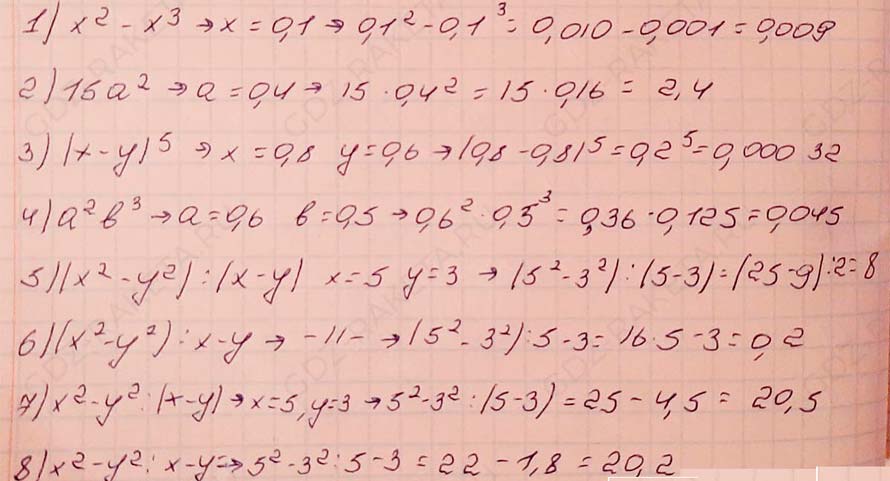 1) x² - x³ → x = 0,1 → 0,1² - 0,1³ = 0,010 - 0,001 = 0,009
2) 15a² → a = 0,4 → 15 · 0,4² = 15 · 0,16 = 2,4
3) (x - y)⁵ → x = 0,8 y = 0,6 → (0,8 - 0,8)⁵ = 0,2⁵ = 0,000 32
4) a²b³ → a = 0,6 b = 0,5 → 0,6² · 0,5³ = 0,36 · 0,125 = 0,045
5) (x² - y²) : (x - y) x = 5 y = 3 → (5² - 3²) : (5 - 3) = (25 - 9) : 2 = 8
6) (x² - y²) : x - y → -11- → (5² - 3²) : 5 - 3 = 16 : 5 - 3 = 0,2
7) x² - y² : (x - y) → x = 5, y = 3 → 5² - 3² : (5 - 3) = 25 - 4,5 = 20,5
8) x² - y² : x - y = → 5² - 3² : 5 - 3 = 22 - 1,8 = 20,2